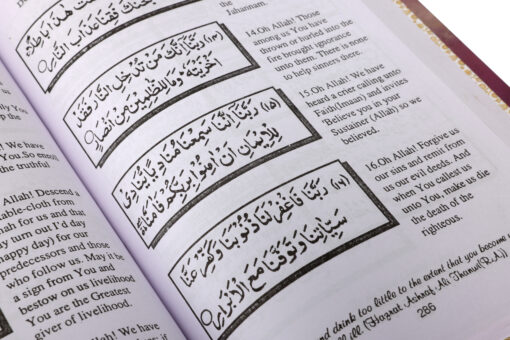 y You
p the
! We have
You.So enroll
the truthful
Allah! Descend a
table-cloth from
ah for us and that
y turn out I'd day
happy day) for our
predecessors and those
who follow us. May it be
a sign from You and
bestow on us livelihood
You are the Greatest
giver of livelihood
Allah! We have
هٰذَا بَاطِلًا
فَقِنَا عَذَابَ النَّارِ
(۱۴) رَبَّنَا اِنَّكَ مَنْ تُدْخِلِ النَّارَ فَقَدْ
اَخْزَيْتَهٗ وَمَا لِلظّٰلِمِيْنَ مِنْ اَنْصَارٍ
(۱۵) رَبَّنَا اِنَّنَا سَمِعْنَا مُنَادِيًا يُّنَادِىْ
لِلْاِيْمَانِ اَنْ اٰمِنُوْا بِرَبِّكُمْ فَاٰمَنَّا
(۱۶) رَبَّنَا فَاغْفِرْ لَنَا ذُنُوْبَنَا وَكَفِّرْ عَنَّا
سَيِّاٰتِنَا وَتَوَفَّنَا مَعَ الْاَبْرَارِ
Jahannam.
14.Oh Allah! Those
among us You have
thrown or hurled into the
fire brought ignorance
unto them. There is none
to help sinners there.
15.Oh Allah! We have
heard a crier calling unto
Faith(Imaan) and invites
'Believe you in your
Sustainer (Allah) so we
believed.
16.Oh Allah! Forgive us
our sins and remit from
us our evil deeds. And
when You callest us
unto You, make us die
the death of the
righteous.
and drink too little to the extent that you become
ill. (Hazrat Ashraf Ali Thanvi(R.A))
286